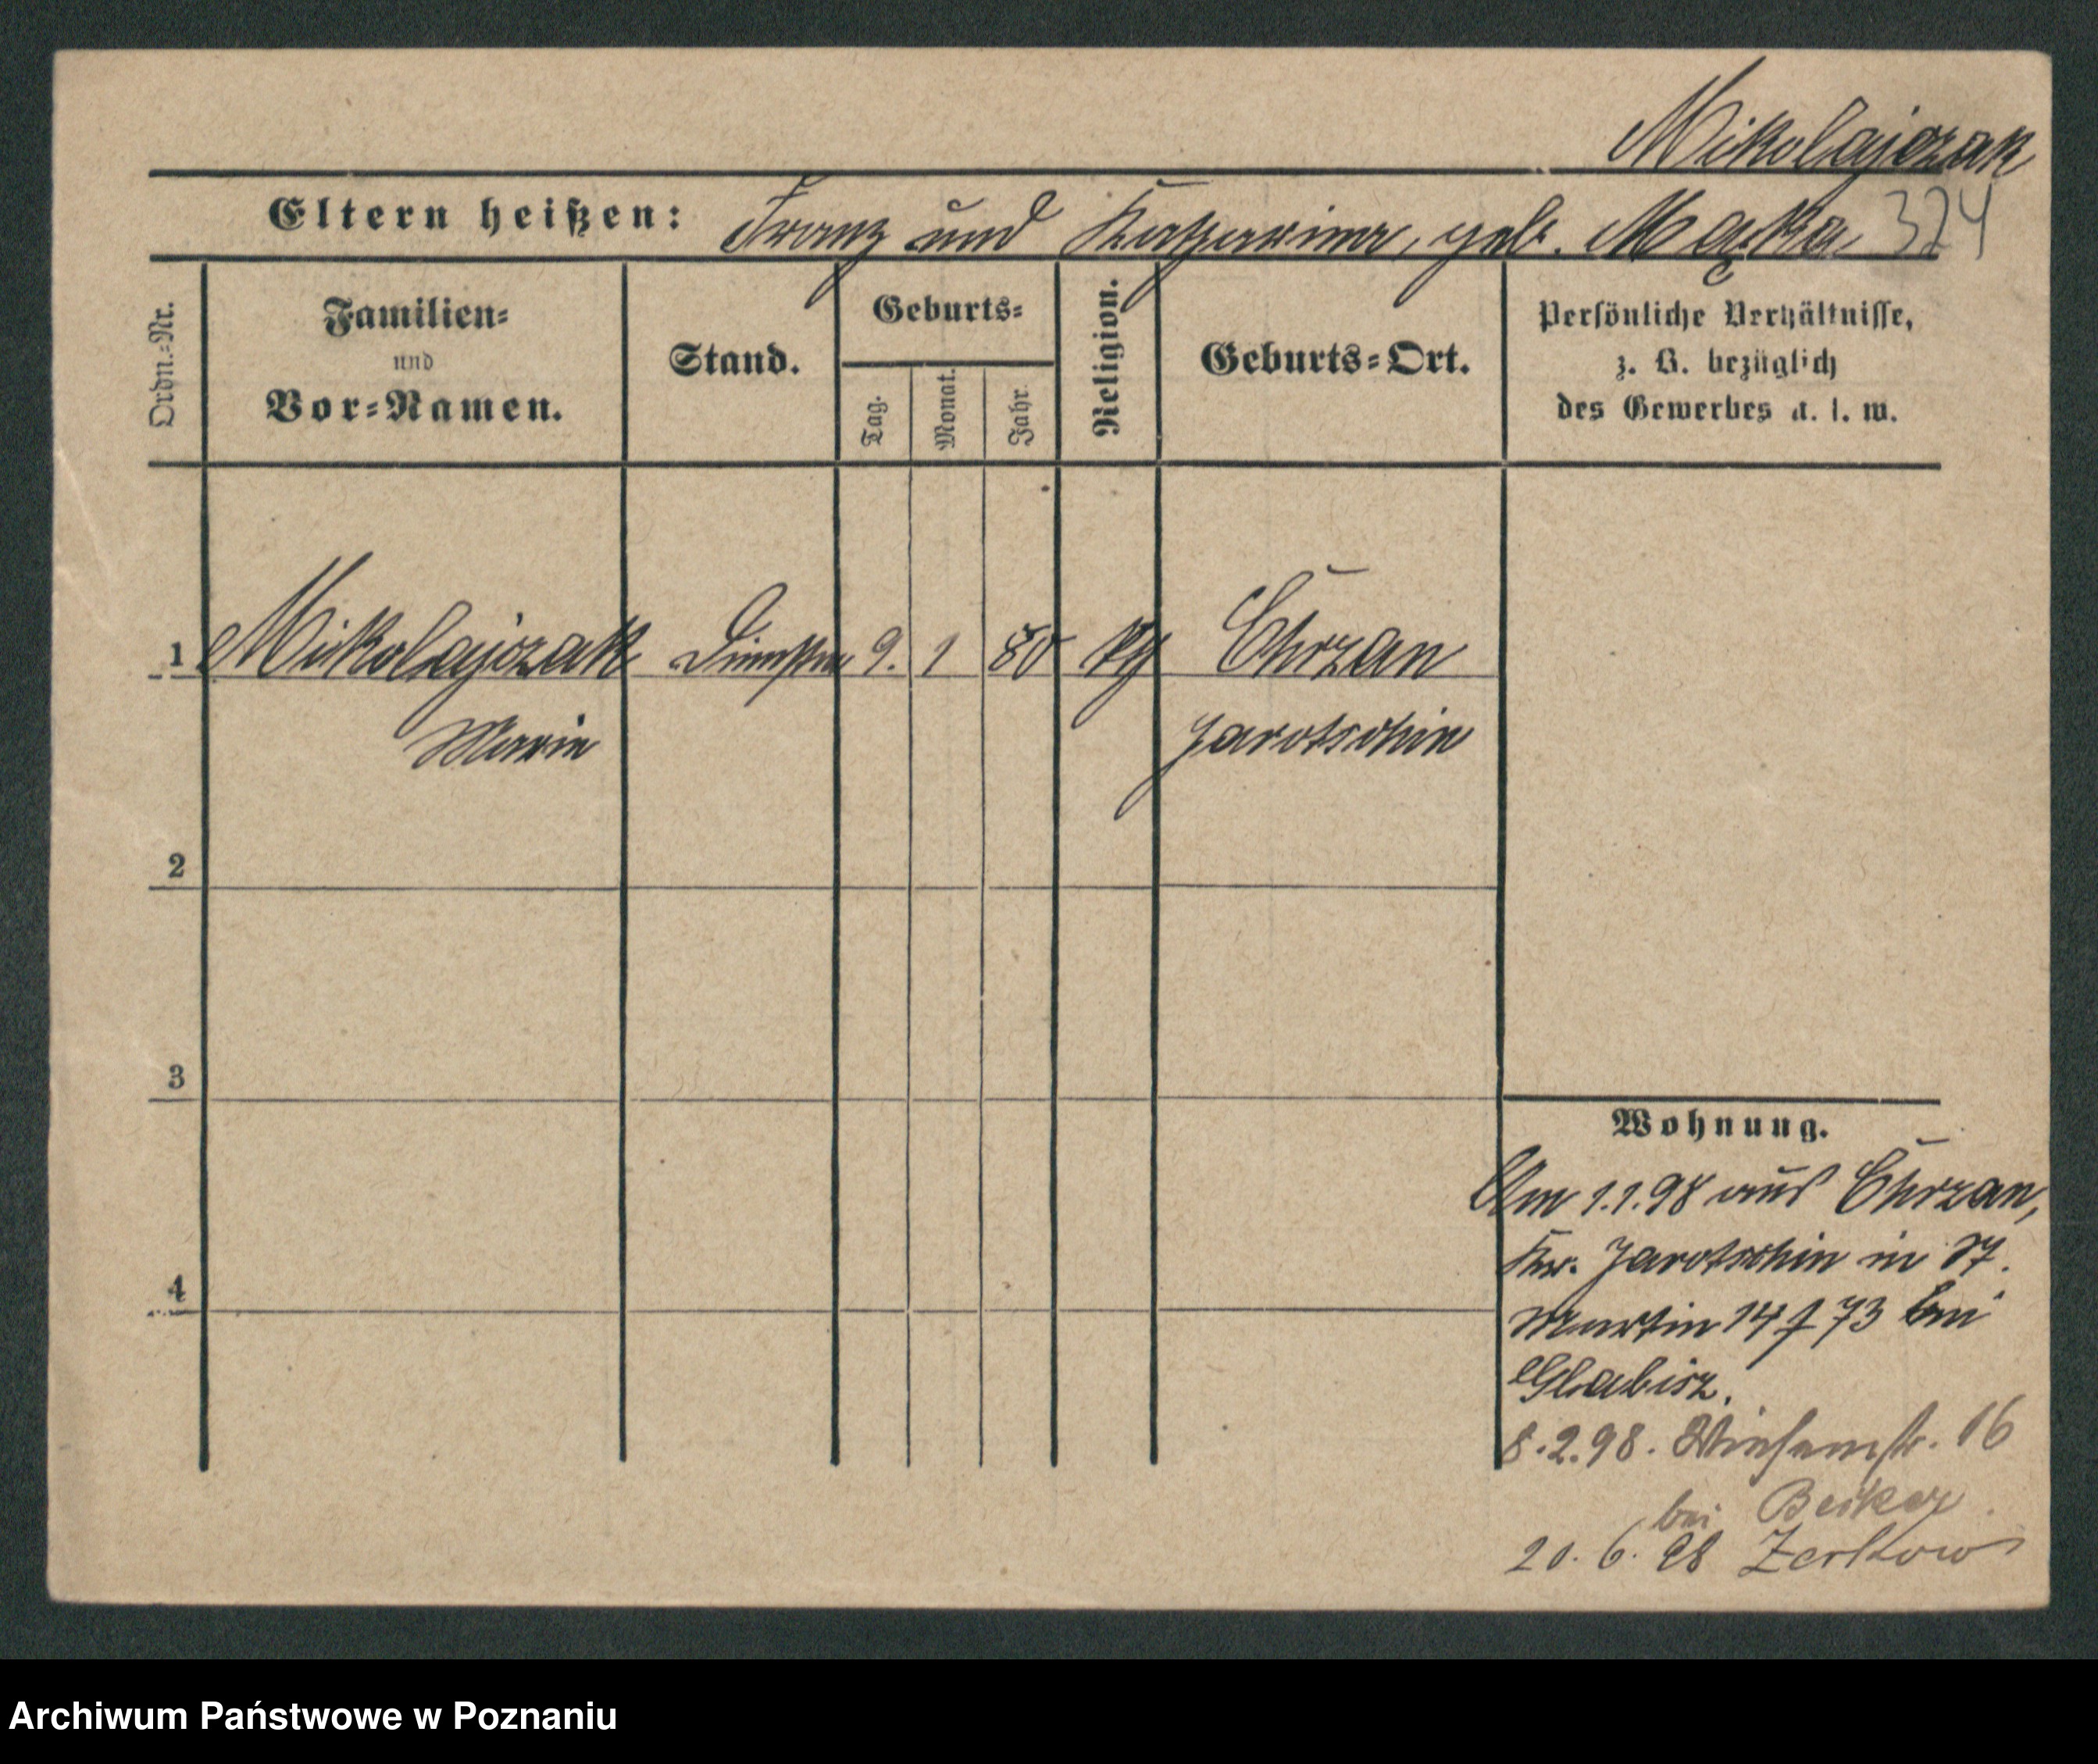 Mikolajczak
Eltern heißen: Franz und Katharina, geb. Mączka 324
Ordn.-Nr.
Familien-
und
Vor-Namen.
Stand.
Geburts-
Tag.
Monat.
Jahr
Religion.
Geburts-Ort.
Persönliche Verhältnisse,
z. B. bezüglich
des Gewerbes u. s. w.
1 Mikolajczak 9. 1 80 Chrzan
Marie Jarotschin
2
3
Wohnung.
Am 1.1.98 aus Chrzan,
Kr. Jarotschin in St.
4
Martin 14 73 bei
Glabisz.
8.2.98. Wiesenstr. 16
bei
20.6.98 Zerkow
Archiwum Państwowe w Poznaniu